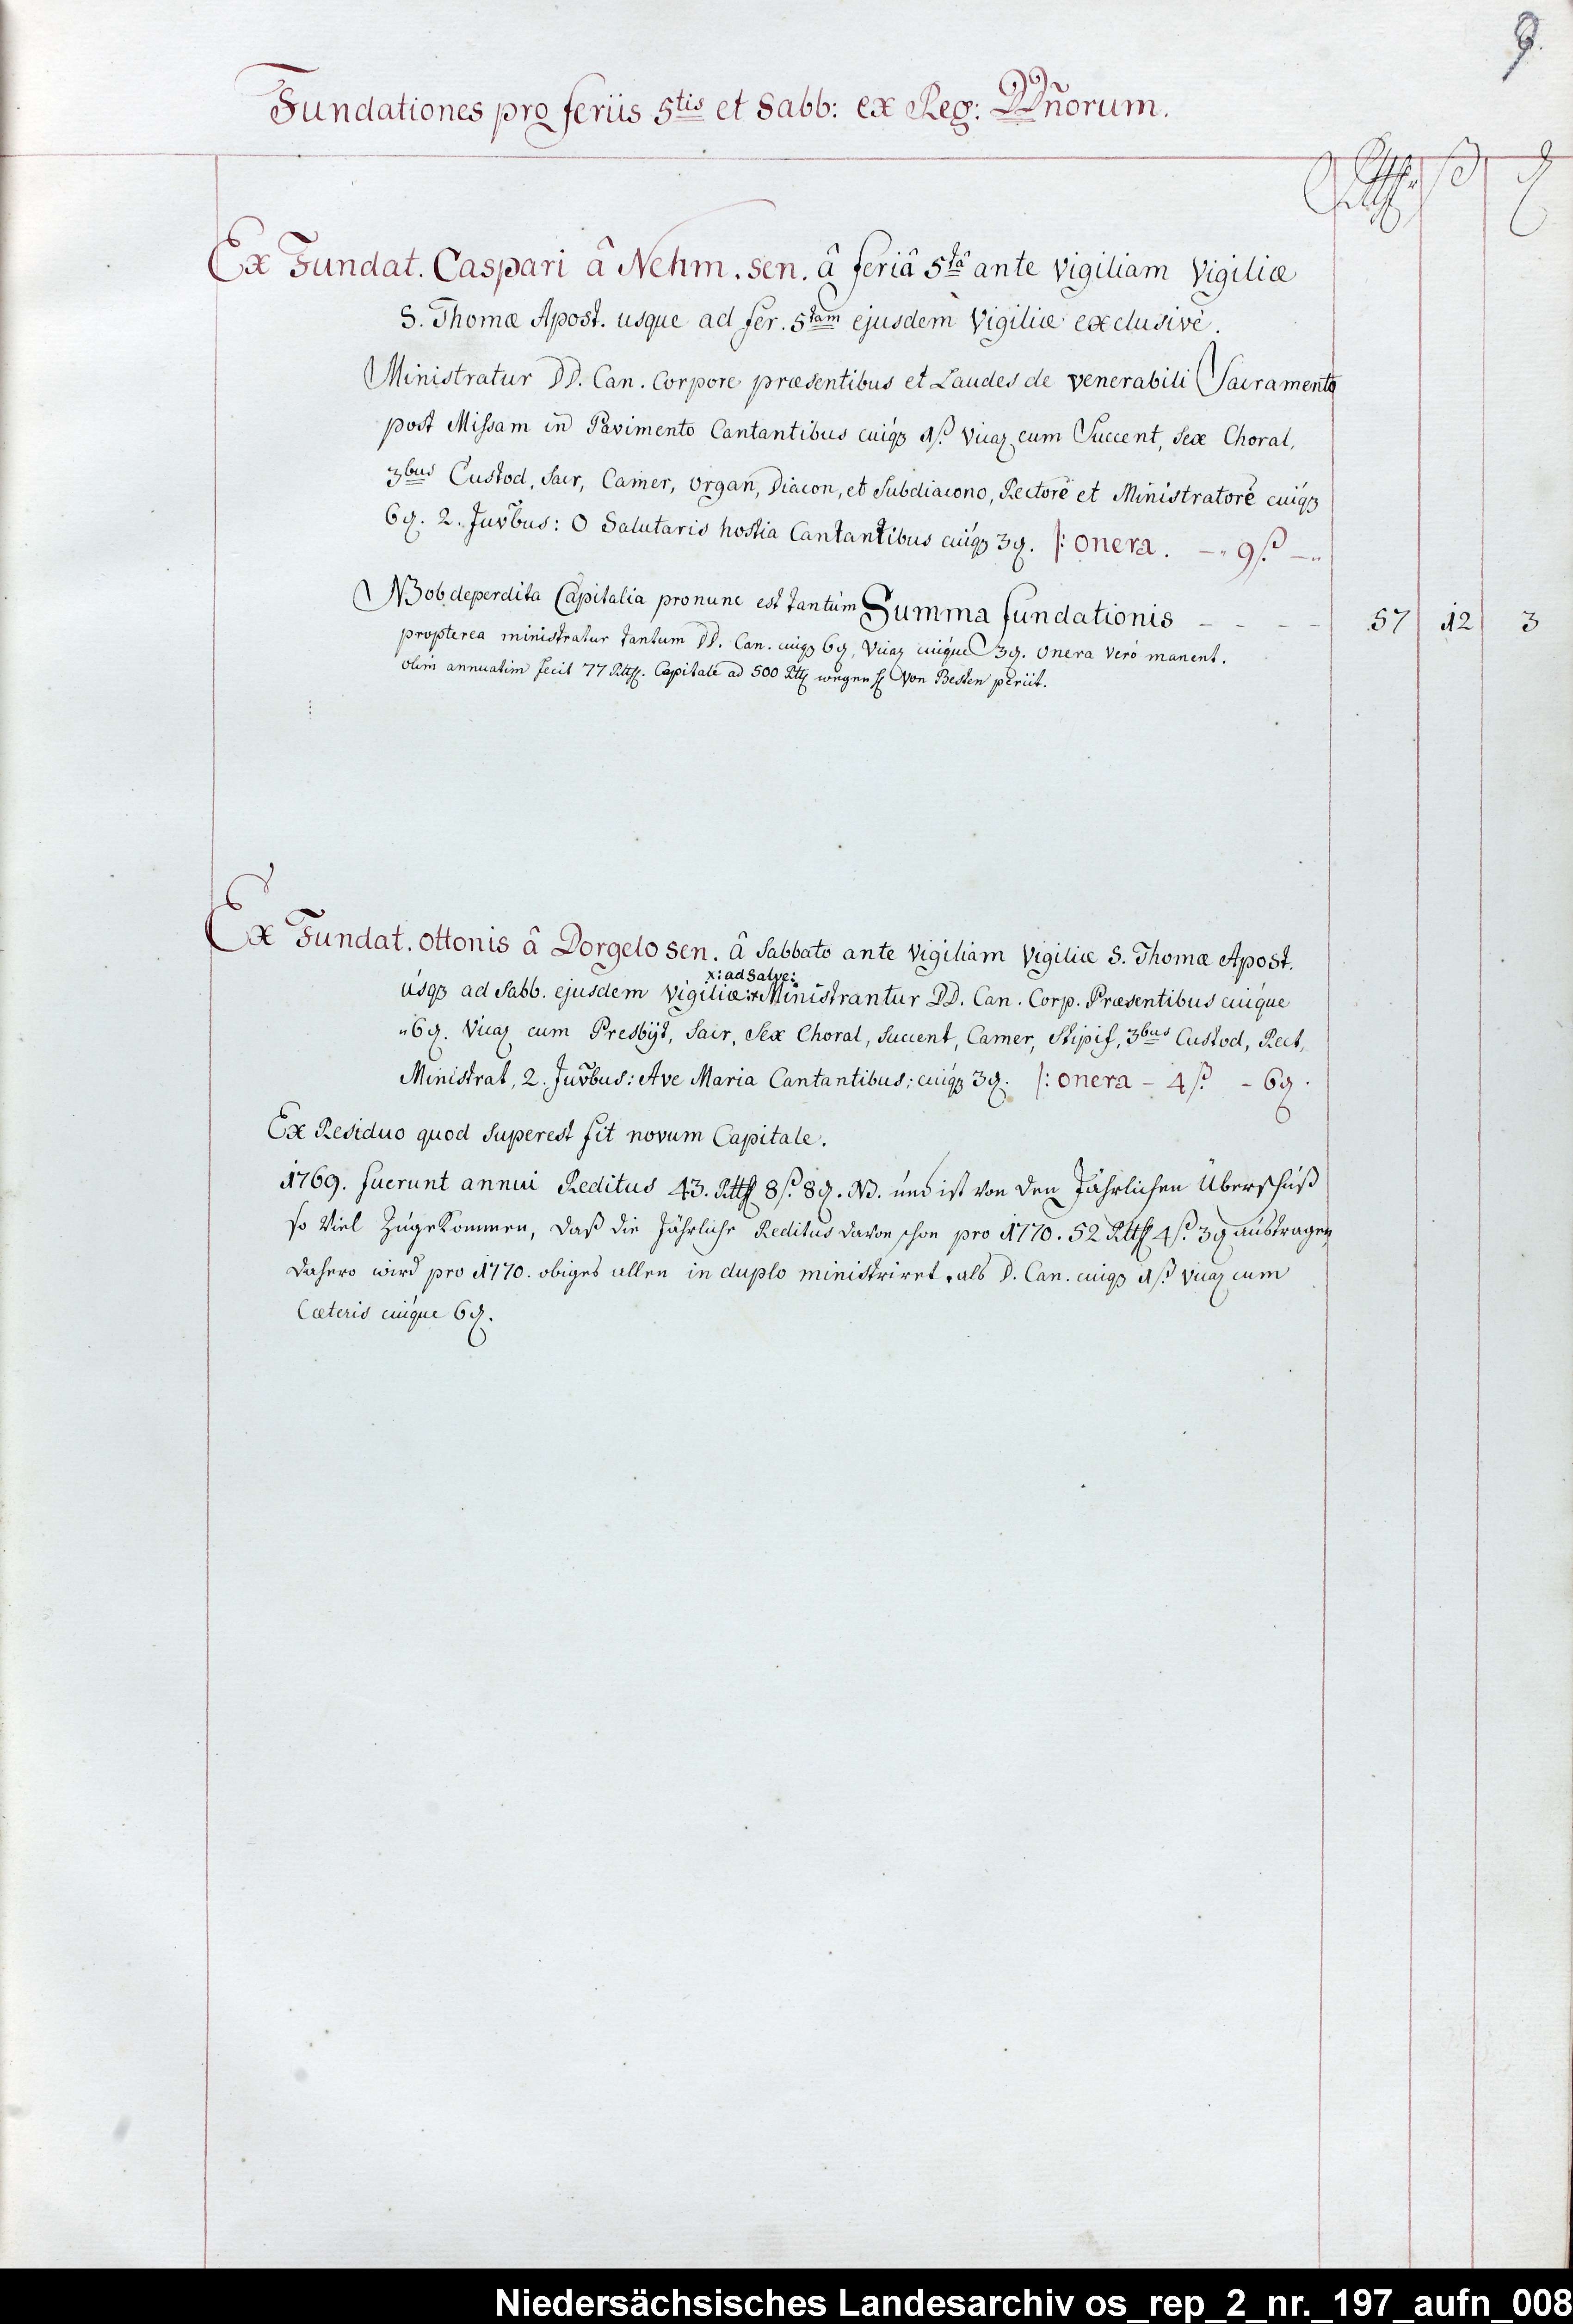 9.
Fundationes pro feriis 5tis et Sabb: ex Reg: DDñorum.
Rthlr ß ₰
Ex Fundat. Caspari â Nehm. sen. â feriâ 5tâ ante Vigiliam Vigiliæ
S. Thomæ Apost. usque ad fer. 5tam ejusdem Vigiliæ exclusivè.
Ministratur DD. Can. Corpore præsentibus et Laudes de venerabili Sacramento
post Missam in Pavimento Cantantibus cuiqz 1ß. Vicaz cum Succent, Sex Choral,
3bus Custod, Sacr, Camer, Organ, Diacon, et Subdiacono, Rectore et Ministratore cuiqz
6₰. 2. Juv̄bus: O Salutaris hostia Cantantibus cuiqz 3₰. /: onera. -" 9ß -"
NB ob deperdita Capitalia pronunc est tantùm Summa fundationis - - - - 57 12 3
propterea ministratur tantum DD. Can. cuiqz 6₰, Vicaz cuique 3₰. Onera verò manent.
olim annuatim fecit 77 Rthlr. Capitale ad 500 Rthlr wegen H Von Besten periit.
Ex Fundat. Ottonis â Dorgelo sen. â Sabbato ante Vigiliam Vigiliæ S. Thomæ Apost.
x: ad Salve:
usqz ad Sabb. ejusdem Vigiliæ:x Ministrantur DD. Can. Corp. Præsentibus cuique
"6₰. Vicaz cum Presbyt, Sacr, Sex Choral, Succent, Camer, Stipif, 3bus Custod, Rect,
Ministrat, 2. Juv̄bus: Ave Maria Cantantibus; cuiqz 3₰. /: onera - 4ß - 6₰.
Ex Residuo quod Superest fit novum Capitale.
1769. fuerunt annui Reditus 43. Rthlr 8ß. 8₰. NB. und ist von den Jährlichen Überschuß
so Viel Zugekommen, daß die Jährliche Reditus davon schon pro 1770. 52 Rthlr 4ß. 3₰ austragen
dahero wird pro 1770. obiges allen in duplo ministriret, als D. Can. cuiqz 1ß Vicaz cum
Cæteris cuique 6₰.
Niedersächsisches Landesarchiv os_rep_2_nr._197_aufn_008